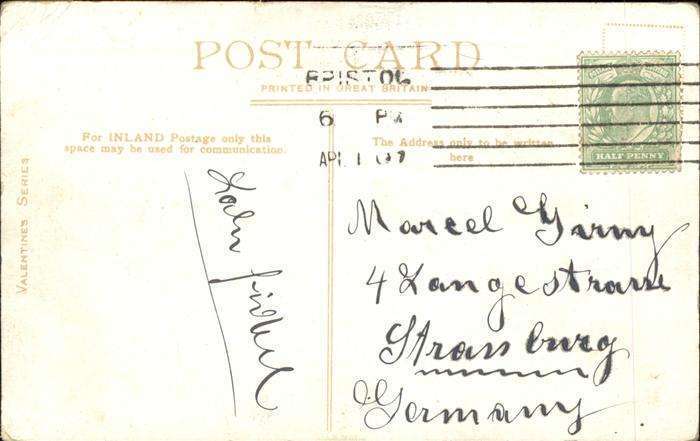 POST CARD
PRINTED IN GREAT BRITAIN
BRISTOL
6 PM
AP 1 07
HALF PENNY
For INLAND Postage only this
space may be used for communication.
The Address only to be written
here
VALENTINES SERIES
Marcel Girny
4 Langestrasse
Strassburg
Germany